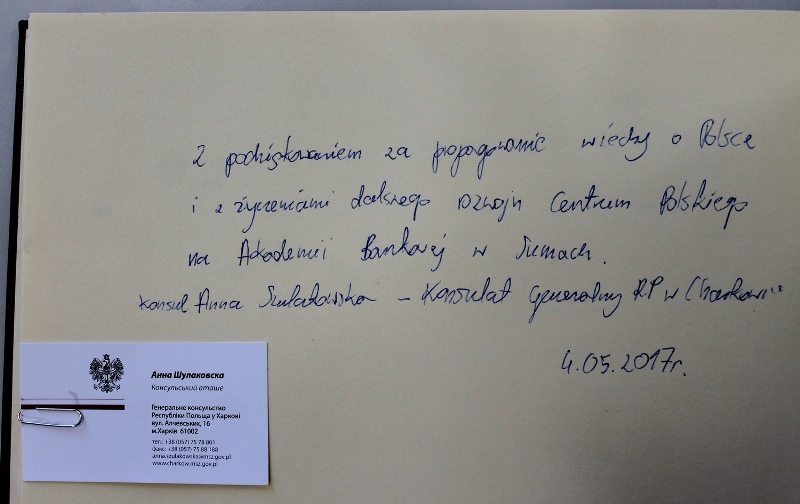 Z podziękowaniem za propagowanie wiedzy o Polsce
i z życzeniami dalszego rozwoju Centrum Polskiego
na Akademii Bankowej w Sumach.
Konsul Anna Szulakowska – Konsulat Generalny RP w Charkowie
4.05.2017r.
Анна Шулаковска
Консульський аташе
Генеральне консульство
Республіки Польща у Харкові
вул. Алчевських, 16
м.Харків 61002
тел.: +38 (057) 75 78 801
факс: +38 (057) 75 88 188
anna.szulakowska@msz.gov.pl
www.charkow.msz.gov.pl